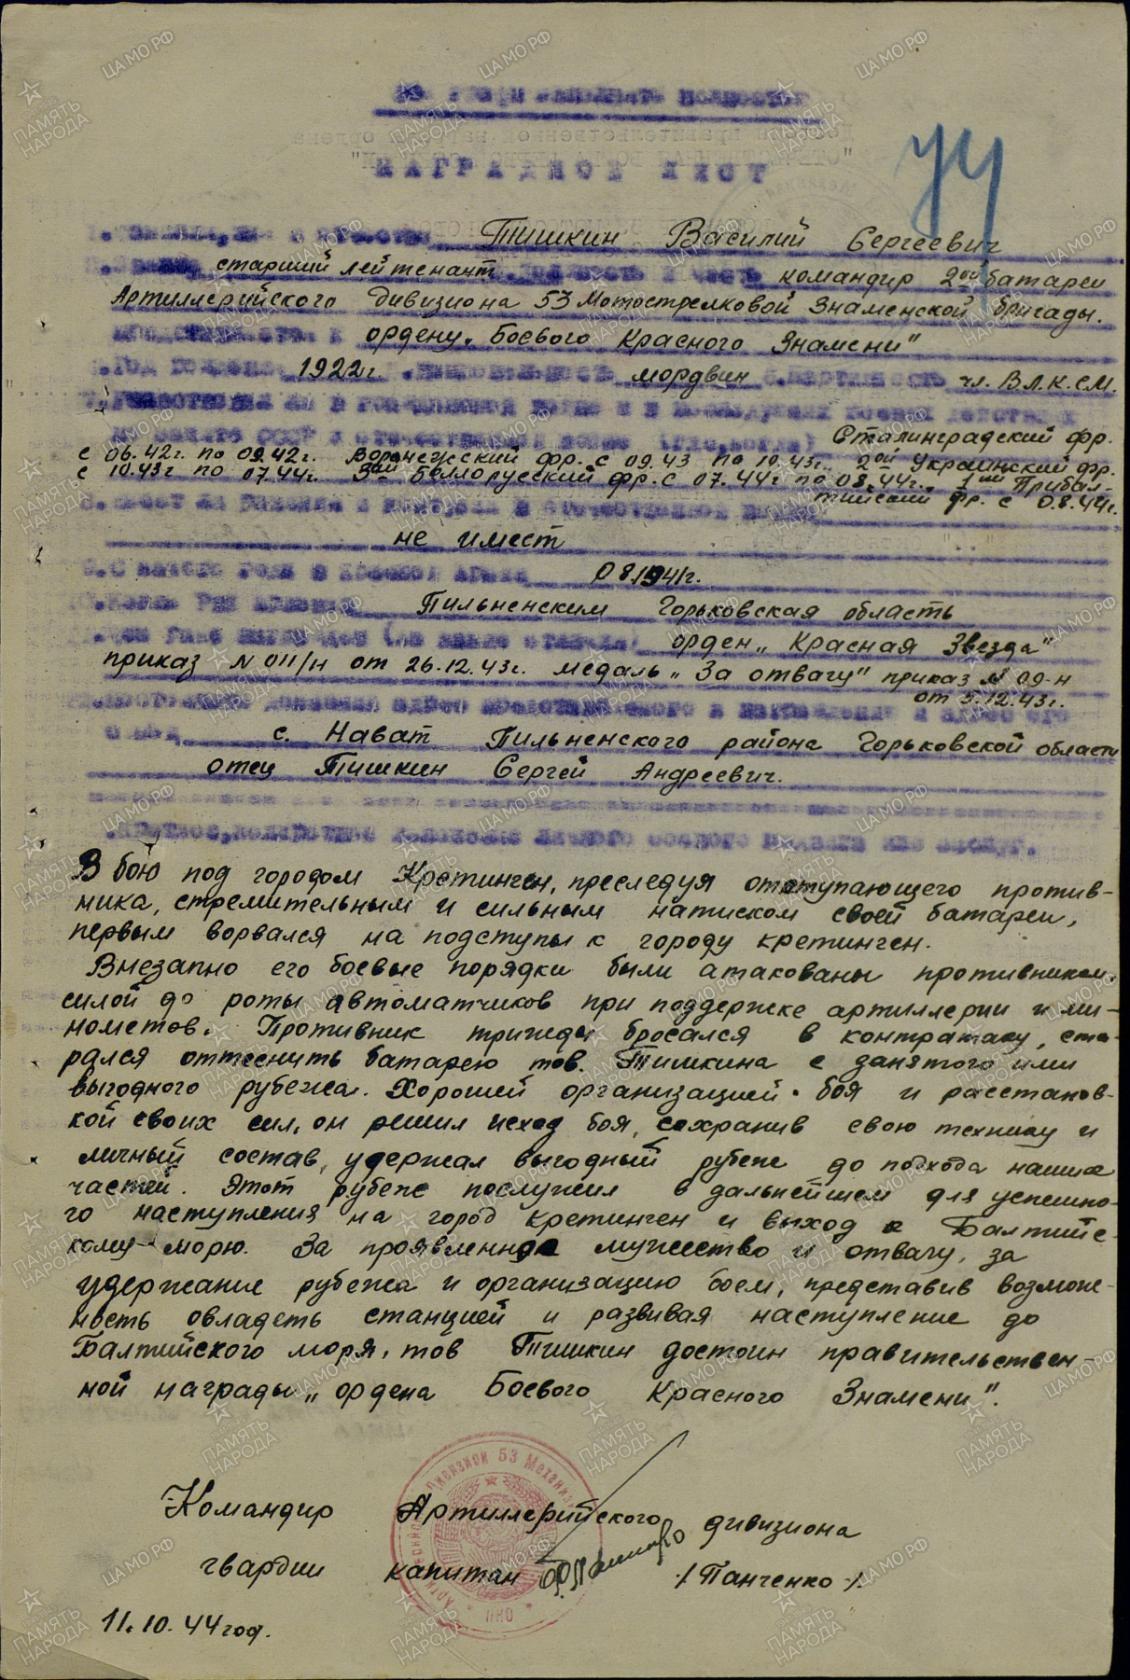 НАГРАДНОЙ ЛИСТ
1. Фамилия, имя и отчество Тишкин Василий Сергеевич
2. Звание старший лейтенант 3. Должность и часть командир 2ой батареи
Артиллерийского дивизиона 53 Мотострелковой Знаменской бригады.
Представляется к ордену „Боевого Красного Знамени"
4. Год рождения 1922 г. 5. Национальность мордвин 6. Партийность чл. В.Л.К.СМ.
7. Участвовал ли в гражданской войне и в последующих боевых действиях
по защите СССР и отечественной войне (где, когда) Сталинградский фр.
с 06.42г. по 09.42г. Воронежский фр. с 09.43 по 10.43г. 2ой Украинский фр.
с 10.43г по 07.44г. 3ий Беллорусский фр. с 07.44г по 08.44г., 1ый Прибал-
тийский фр. с 08.44г.
8. Имеет ли ранения и контузии в отечественной войне
не имеет
9. С какого года в Красной Армии 08.1941г.
10. Каким РВК призван Пильненским Горьковская область
11. Чем ранее награжден (за какие отличия) орден „Красная Звезда"
приказ N 011/н от 26.12.43г. медаль „За отвагу" приказ N 09-н
от 5.12.43г.
12. Постоянный домашний адрес представляемого к награждению и адрес его
семьи с. Нават Пильненского района Горьковской области
отец Тишкин Сергей Андреевич.
Краткое, конкретное изложение личного боевого подвига или заслуг.
В бою под городом Кретинген, преследуя отступающего против-
ника, стремительным и сильным натиском своей батареи,
первым ворвался на подступы к городу кретинген.
Внезапно его боевые порядки были атакованы противником
силой до роты автоматчиков при поддержке артиллерии и ми-
нометов. Противник трижды бросался в контратаку, ста-
рался оттеснить батарею тов. Тишкина с занятого ими
выгодного рубежа. Хорошей организацией боя и расстанов-
кой своих сил, он решил исход боя, сохранив свою технику и
личный состав, удержал выгодный рубеж до подхода наших
частей. Этот рубеж послужил в дальнейшем для успешно-
го наступления на город кретинген и выход к Балтийс-
кому морю. За проявленное мужество и отвагу, за
удержание рубежа и организацию боем, представив возмож-
ность овладеть станцией и развивая наступление до
Балтийского моря, тов Тишкин достоин правительствен-
ной награды „ордена Боевого Красного Знамени".
Командир Артиллерийского дивизиона
гвардии капитан /Панченко/.
11.10.44 год.